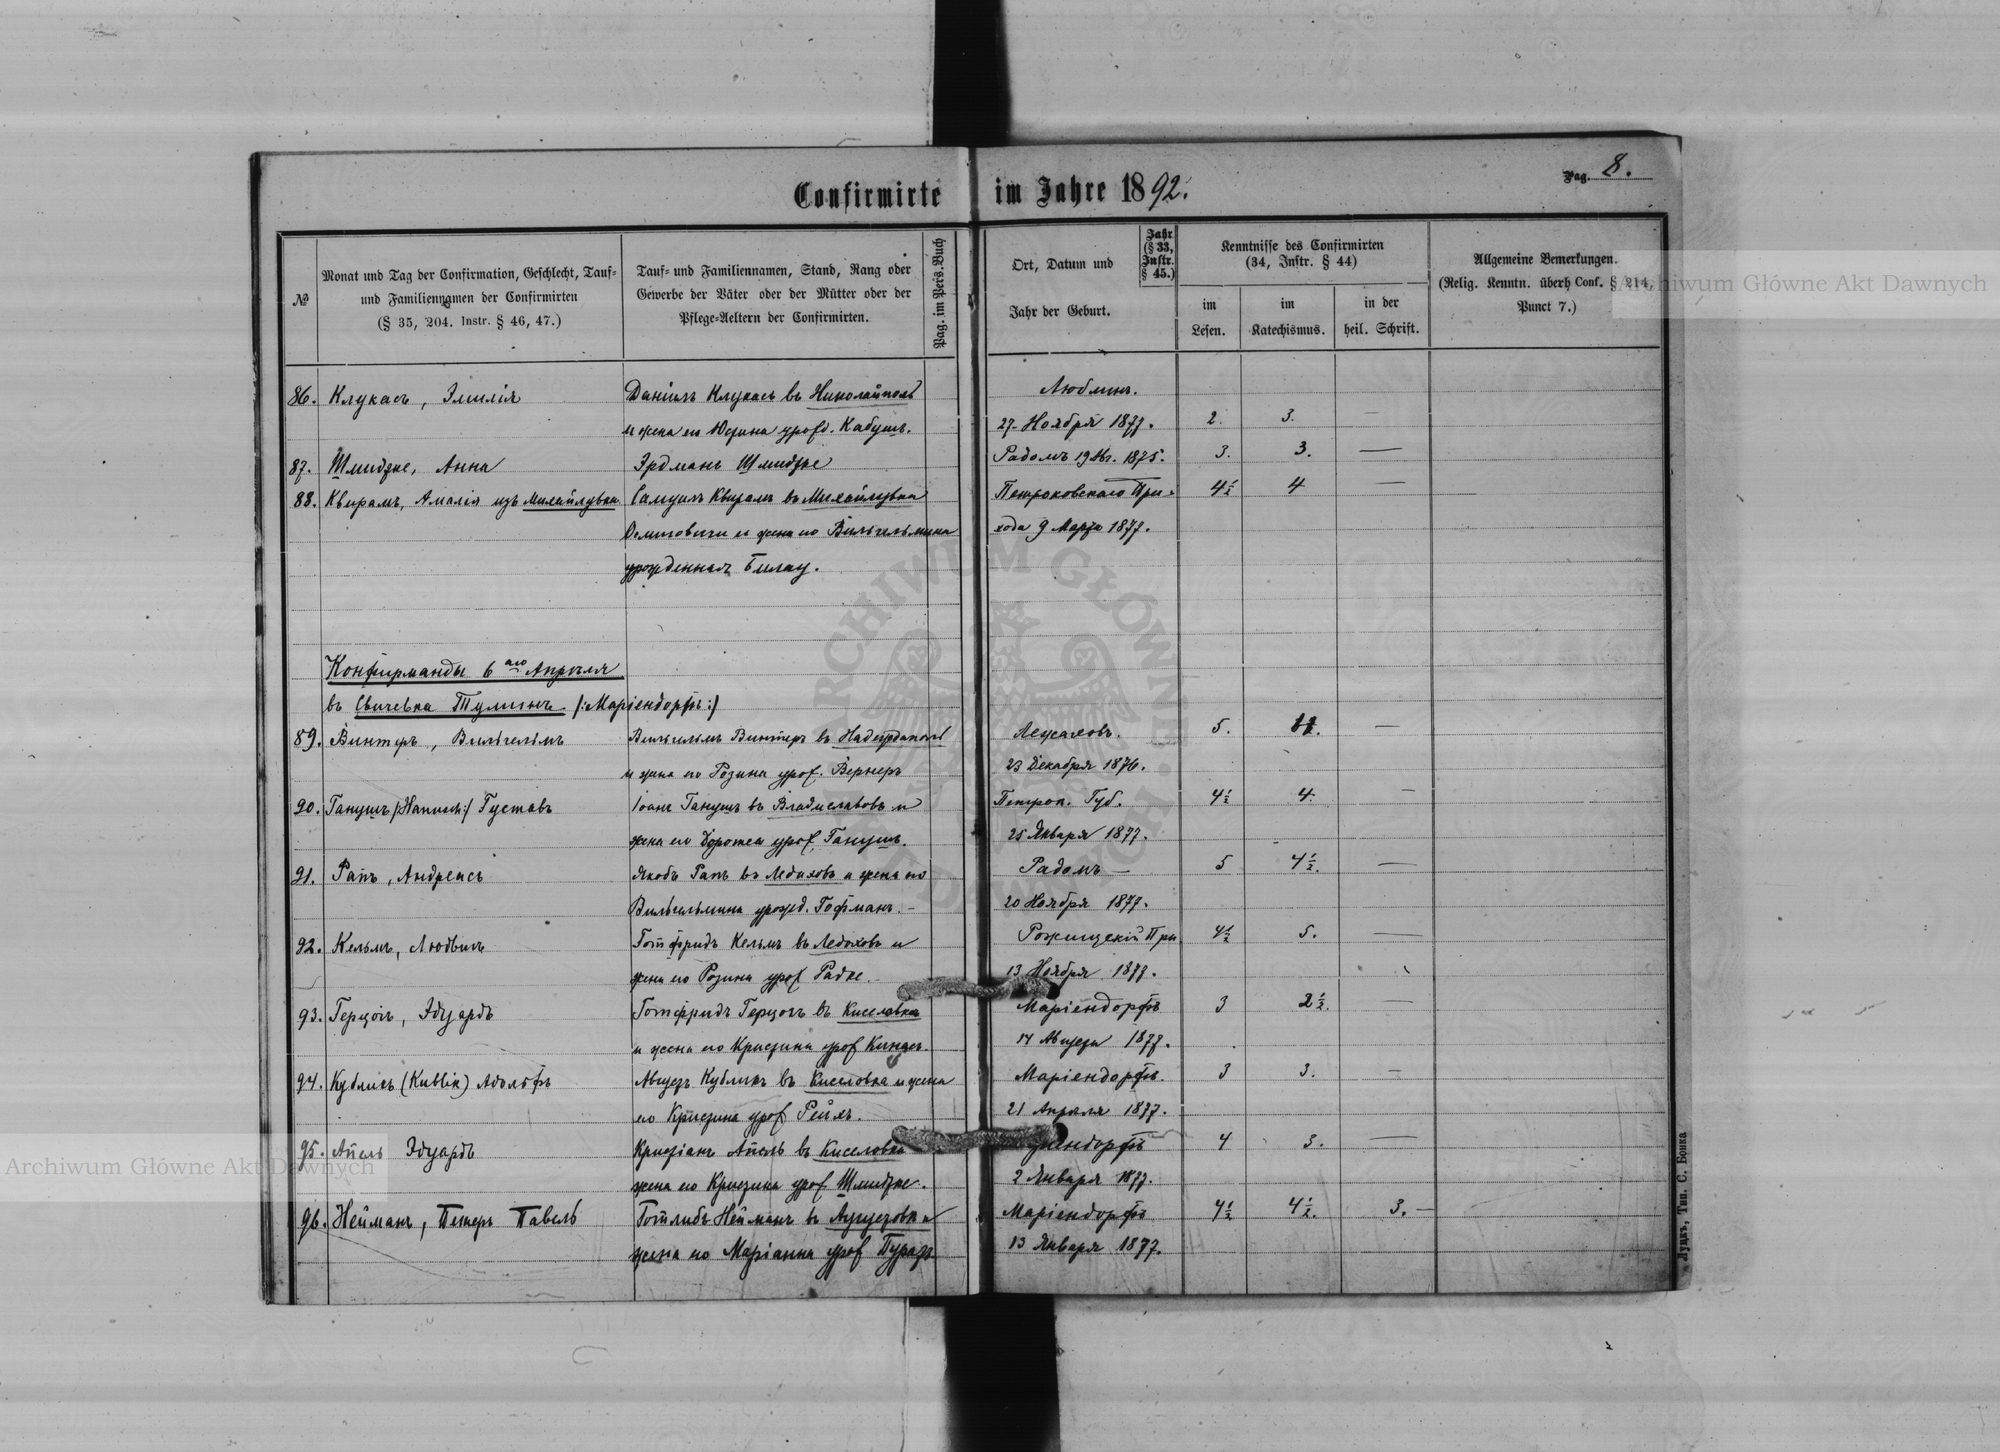 Confirmirte im Jahre 1892.
Pag. 8.
№
Monat und Tag der Confirmation, Geschlecht, Tauf-
und Familiennamen der Confirmirten
(§ 35, 204. Instr. § 46, 47.)
Tauf- und Familiennamen, Stand, Rang oder
Gewerbe der Väter oder der Mütter oder der
Pflege-Aeltern der Confirmirten.
Pag. im Pers. Buch
Ort, Datum und
Jahr der Geburt.
Jahr
(§ 33,
Instr.
§ 45.)
Kenntnisse des Confirmirten
(34, Instr. § 44)
im
Lesen.
im
Katechismus.
in der
heil. Schrift.
Allgemeine Bemerkungen.
(Relig. Kenntn. überh Conf. § 214,
Punct 7.)
86. Клукасъ, Эмилія Даніилъ Клукасъ въ Николайполь Люблинъ.
и жена его Юстина урожд. Кабушъ. 27. Ноября 1877. 2. 3. —
87. Шмидтке, Анна Эрдманъ Шмидтке Радомъ 19 Авг. 1875. 3. 3. —
88. Квирамъ, Амалія изъ Михайлувка Самуилъ Квирамъ въ Михайлувка Петроковскаго При- 4½ 4 —
и жена его Вильгельмина хода 9 Марта 1877.
урожденная Билау.
Конфирманды 6 аго Апрѣля
въ Свичевка Туминъ. /:Маріендорфъ:/
89. Винтеръ, Вильгельмъ Вильгельмъ Винтеръ въ 5. —
и жена его Розина урож. Вернеръ 23 Декабря 1876.
90. Ганушъ /Hannusch:/ Густавъ Іоанъ Ганушъ въ Владиславовъ и Петрок. Губ. 4½ 4. —
жена его Доротеа урож. Ганушъ. 25 Января 1877.
91. Рапъ, Андреасъ Якобъ Рапъ въ Ледоховъ и жена его Радомъ — 5 4½. —
Вильгельмина урожд. Гофманъ. — 20 Ноября 1877.
92. Кельмъ, Людвигъ Готфридъ Кельмъ въ Ледоховъ и Рожищскій При 4½ 5. —
жена его Розина урож Радке. 13 Ноября 1877.
93. Герцогъ, Эдуардъ Готфридъ Герцогъ въ Киселевка Маріендорфъ 3 2½. —
и жена его Кристина урож 14 Августа 1877.
94. Кубликъ (Kublik) Адольфъ Августъ Кубликъ въ Киселовка и жена Маріендорфъ. 3 3. —
его Кристина урож Рейхъ. 21 Апрѣля 1877.
95. Апель Эдуардъ Кристіанъ Апель въ Киселовка 4 3. —
жена его Кристина урож Шмидтке. 2 Января 1877.
96. Нейманъ, Петеръ Павелъ Готлибъ Нейманъ въ Августовка и Маріендорфъ 4½ 4½. 3. —
жена его Маріанна урож 13 Января 1877.
Луцкъ, Тип. С. Бонка
Archiwum Główne Akt Dawnych
Archiwum Główne Akt Dawnych